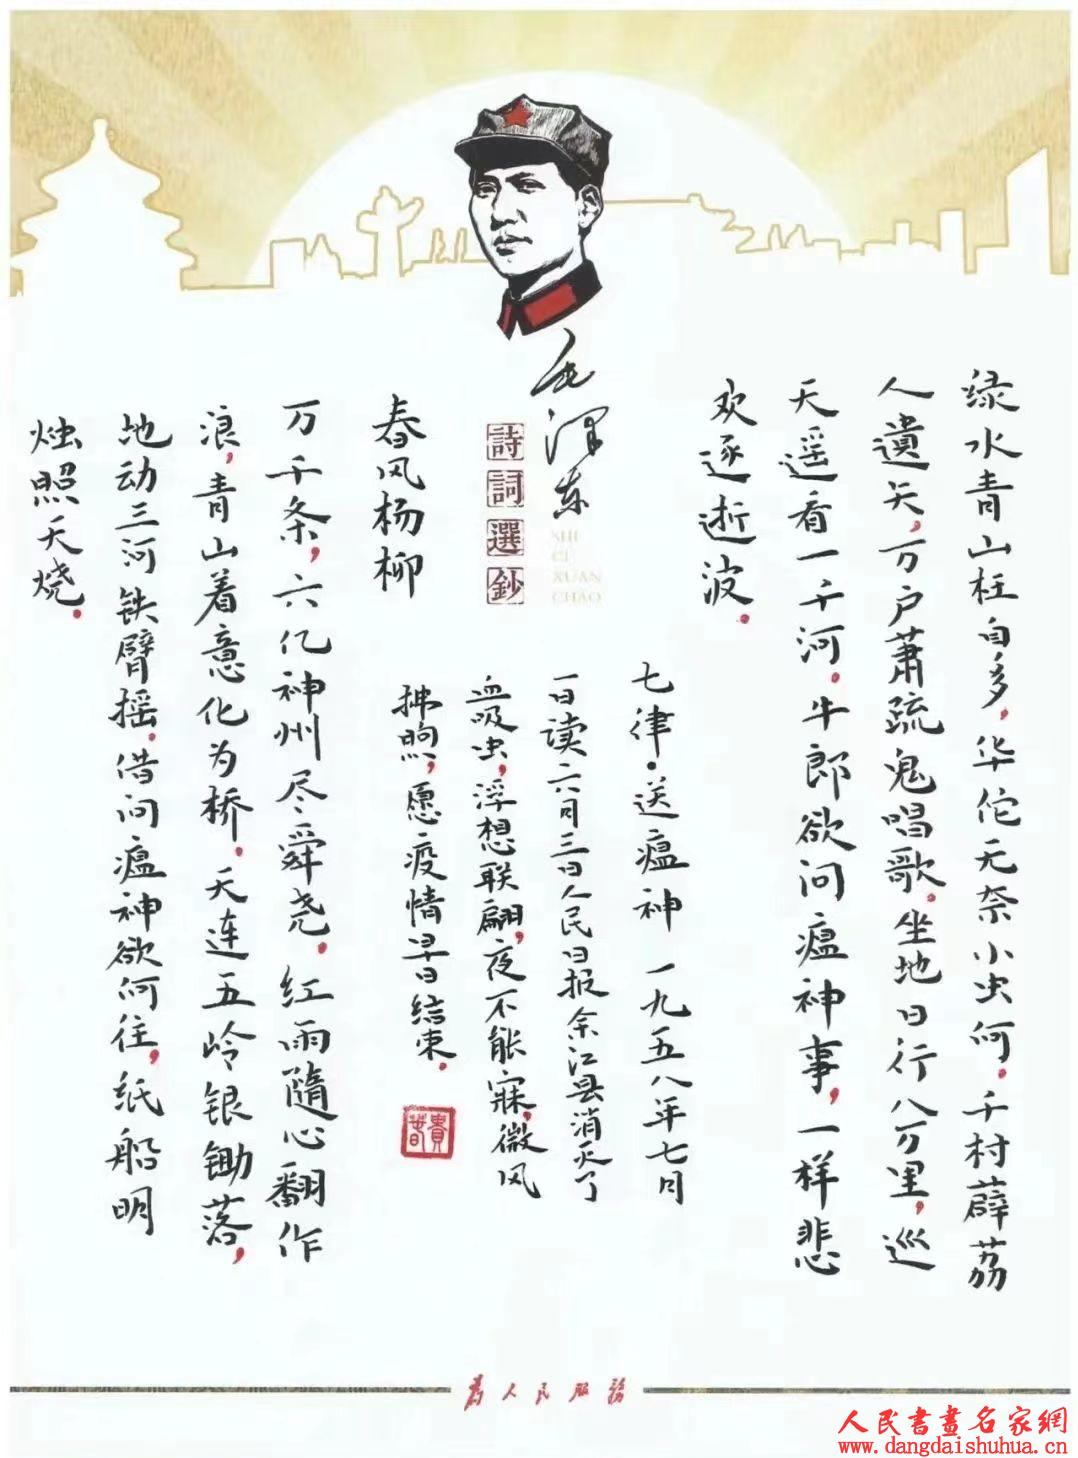 毛泽东
詩詞選鈔
SHI
CI
XUAN
CHAO
绿水青山枉自多,华佗无奈小虫何。千村薜荔
人遺矢,万户萧疏鬼唱歌。坐地日行八万里,巡
天遥看一千河。牛郎欲问瘟神事,一样悲
欢逐逝波。
七律·送瘟神 一九五八年七月
一日读六月三日人民日报余江县消灭了
血吸虫,浮想联翩,夜不能寐,微风
拂煦,愿疫情早日结束。
春风杨柳
万千条,六亿神州尽舜尧。红雨隨心翻作
浪,青山着意化为桥。天连五岭银锄落,
地动三河铁臂摇。借问瘟神欲何往,纸船明
烛照天烧。
為人民服務
人民書畫名家網
www.dangdaishuhua.cn